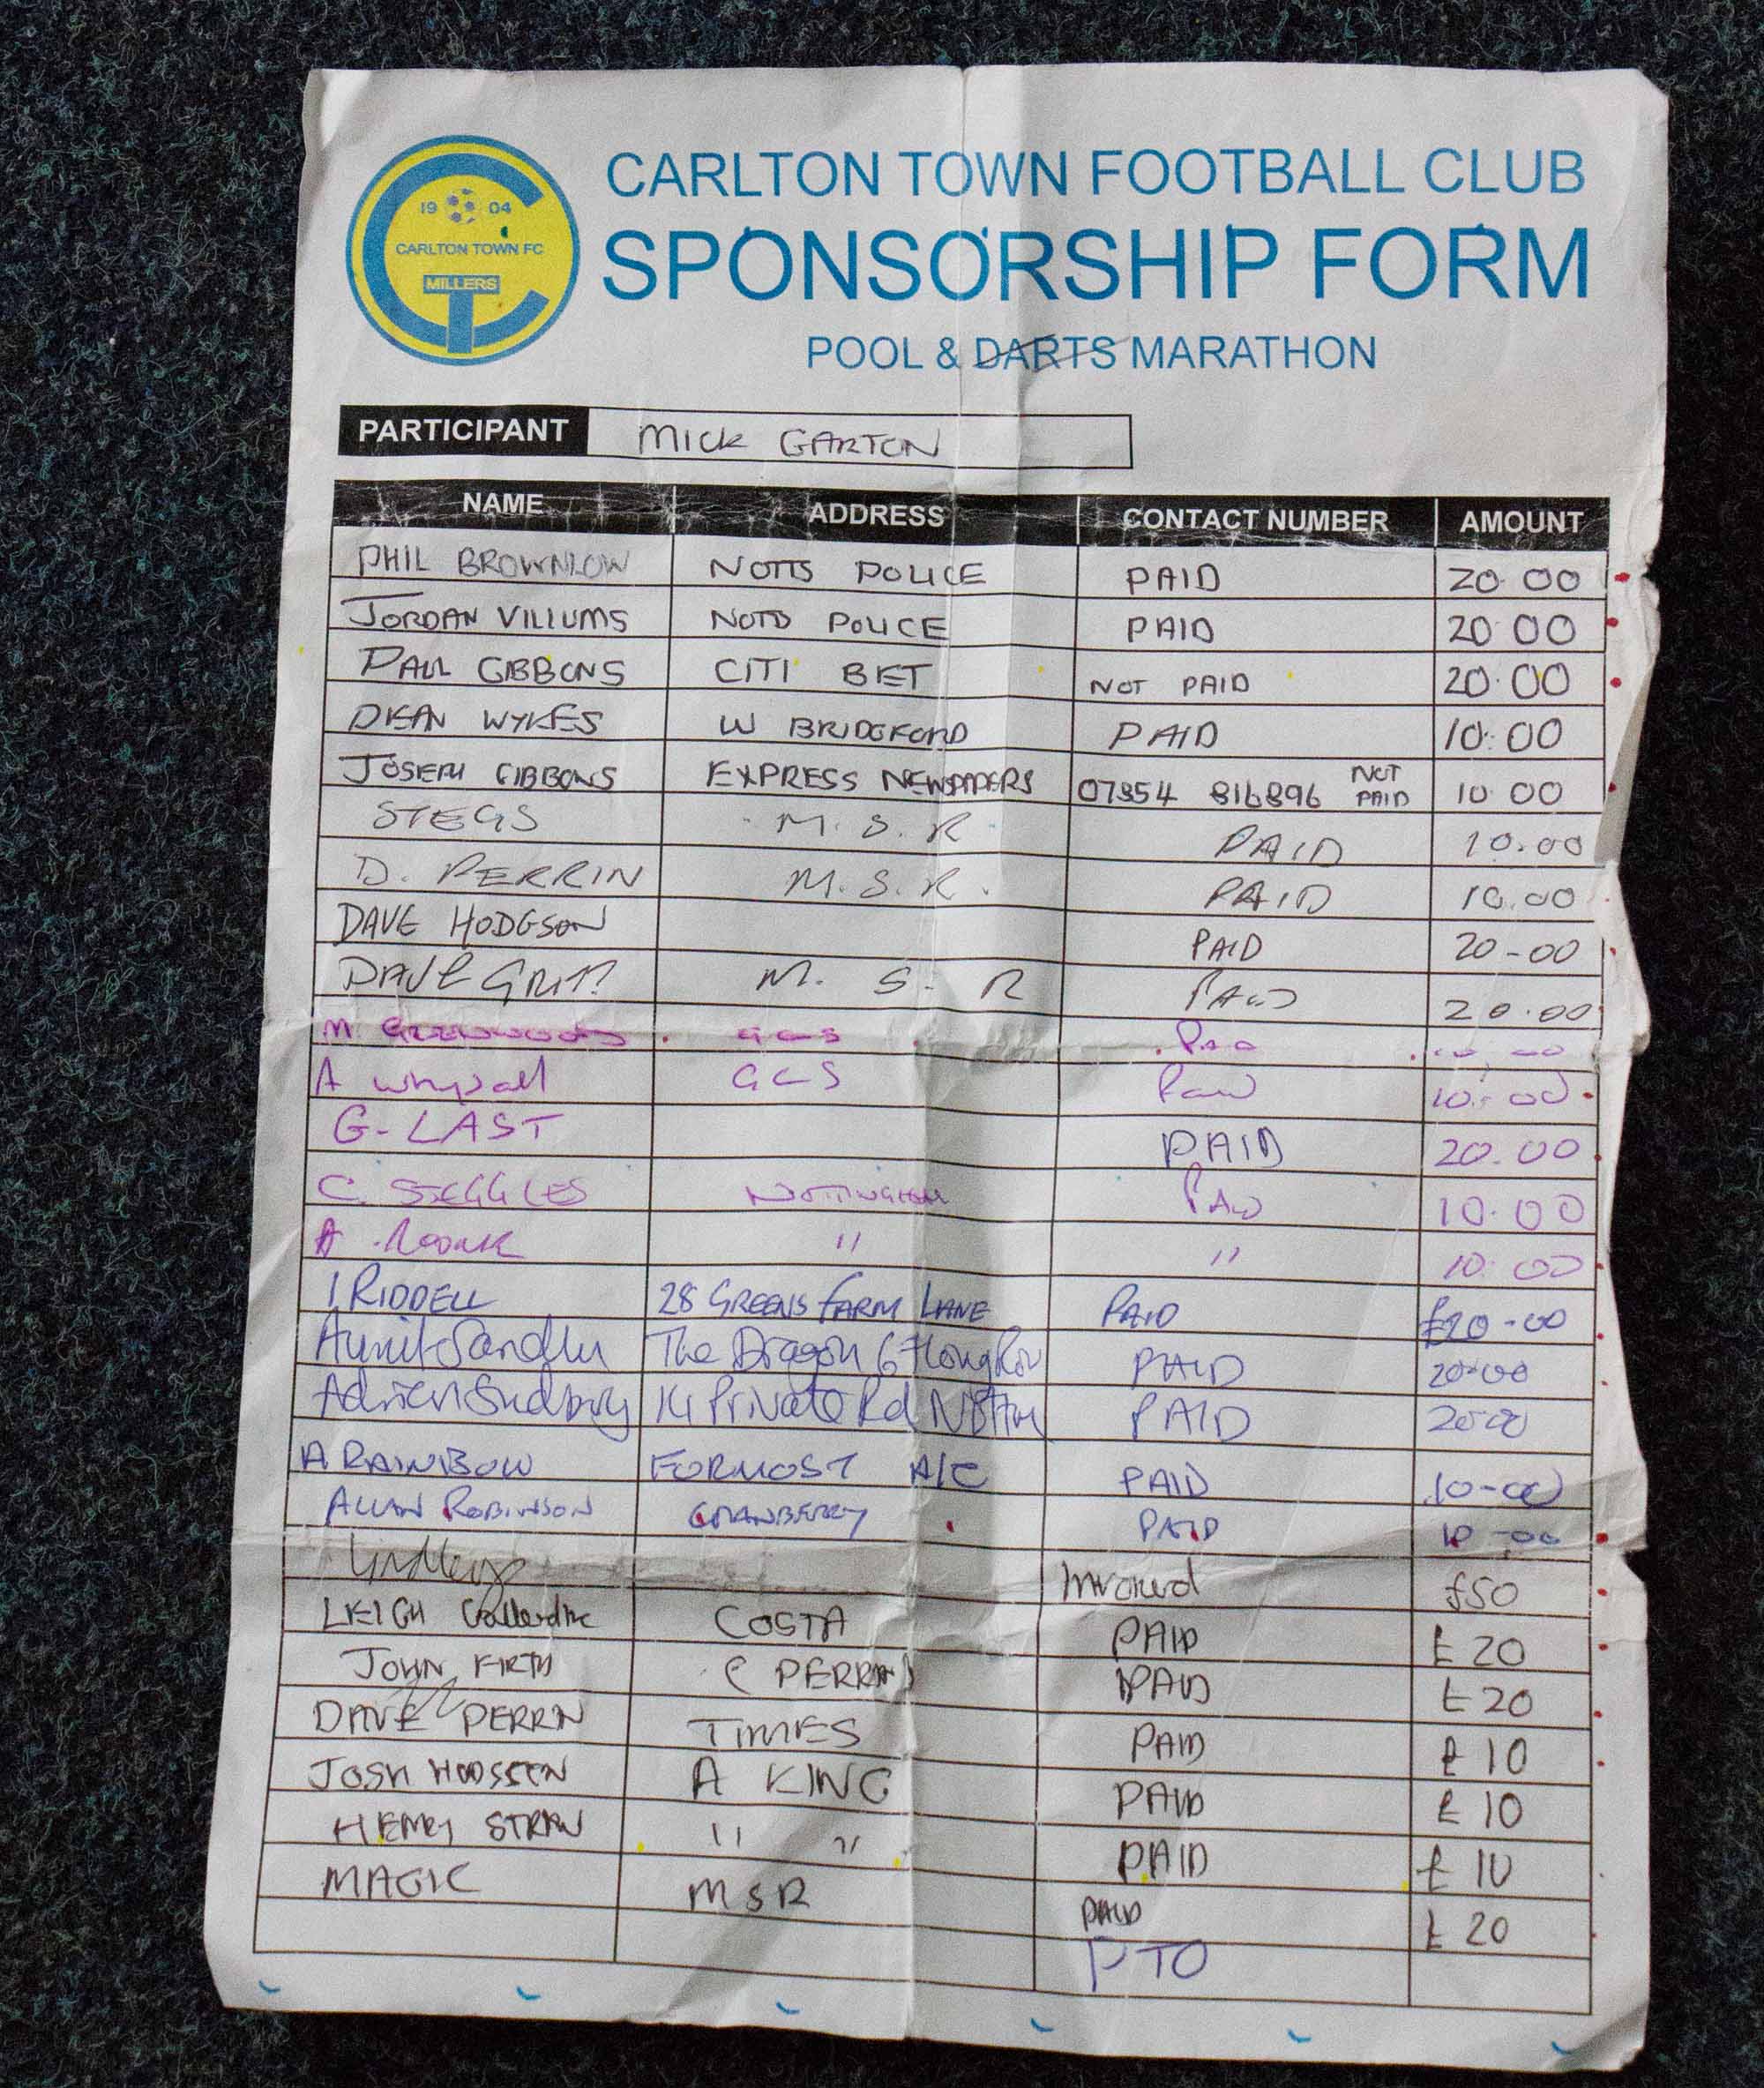 19 04
CARLTON TOWN FC
MILLERS
CARLTON TOWN FOOTBALL CLUB
SPONSORSHIP FORM
POOL & DARTS MARATHON
PARTICIPANT MICK GARTON
NAME ADDRESS CONTACT NUMBER AMOUNT
PHIL BROWNLOW NOTTS POLICE PAID 20.00
JORDAN VILLUMS NOTTS POLICE PAID 20 00
PAUL GIBBONS CITI BET NOT PAID 20.00
DEAN WYKES W BRIDGFORD PAID 10.00
JOSEPH GIBBONS EXPRESS NEWSPAPERS 07354 816896 NOT PAID 10 00
STEGS M.S.R. PAID 10.00
D. PERRIN M.S.R. PAID 10.00
DAVE HODGSON PAID 20-00
DAVE M. S. R PAID 20.00
M. GCS Paid
A GCS Paid 10.00
G. LAST PAID 20.00
C. SEGGLES NOTTINGHAM PAID 10.00
A " " 10.00
I RIDDELL 28 GREENS FARM LANE PAID £20-00
Sandhu The Dragon 67 Long Row PAID 20.00
Adrien Sudbury 14 Private Rd Nottm PAID 20.00
A RAINBOW FORMOST A/C PAID 10-00
ALLAN ROBINSON CRANBERRY PAID 10-00
Lindleys Invoiced £50
LEIGH COSTA PAID £20
JOHN FIRTH (PERRIN) PAID £20
DAVE PERRIN TIMES PAID £10
JOSH A KING PAID £10
HENRY STRAW " " PAID £10
MAGIC MSR PAID £20
PTO